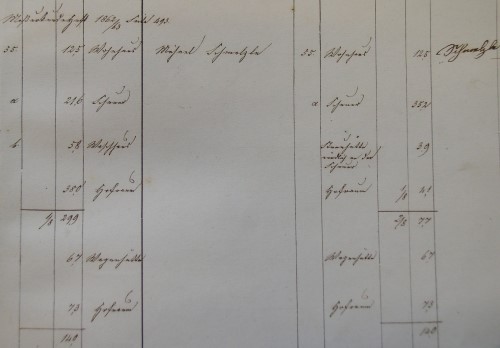 Meßurkundenheft 1862/63 Seite 493.
55 125 Wohnhaus Michael Schmelzle 55 Wohnhaus 125 Schmelzle
a 216 Scheuer a Scheuer 352
b 58 Waschhaus 59
Scheuer
380 Hofraum Hofraum 1/8
2/8 299 2/8 77
67 Wagenhütte Wagenhütte 67
73 Hofraum Hofraum 73
140 140